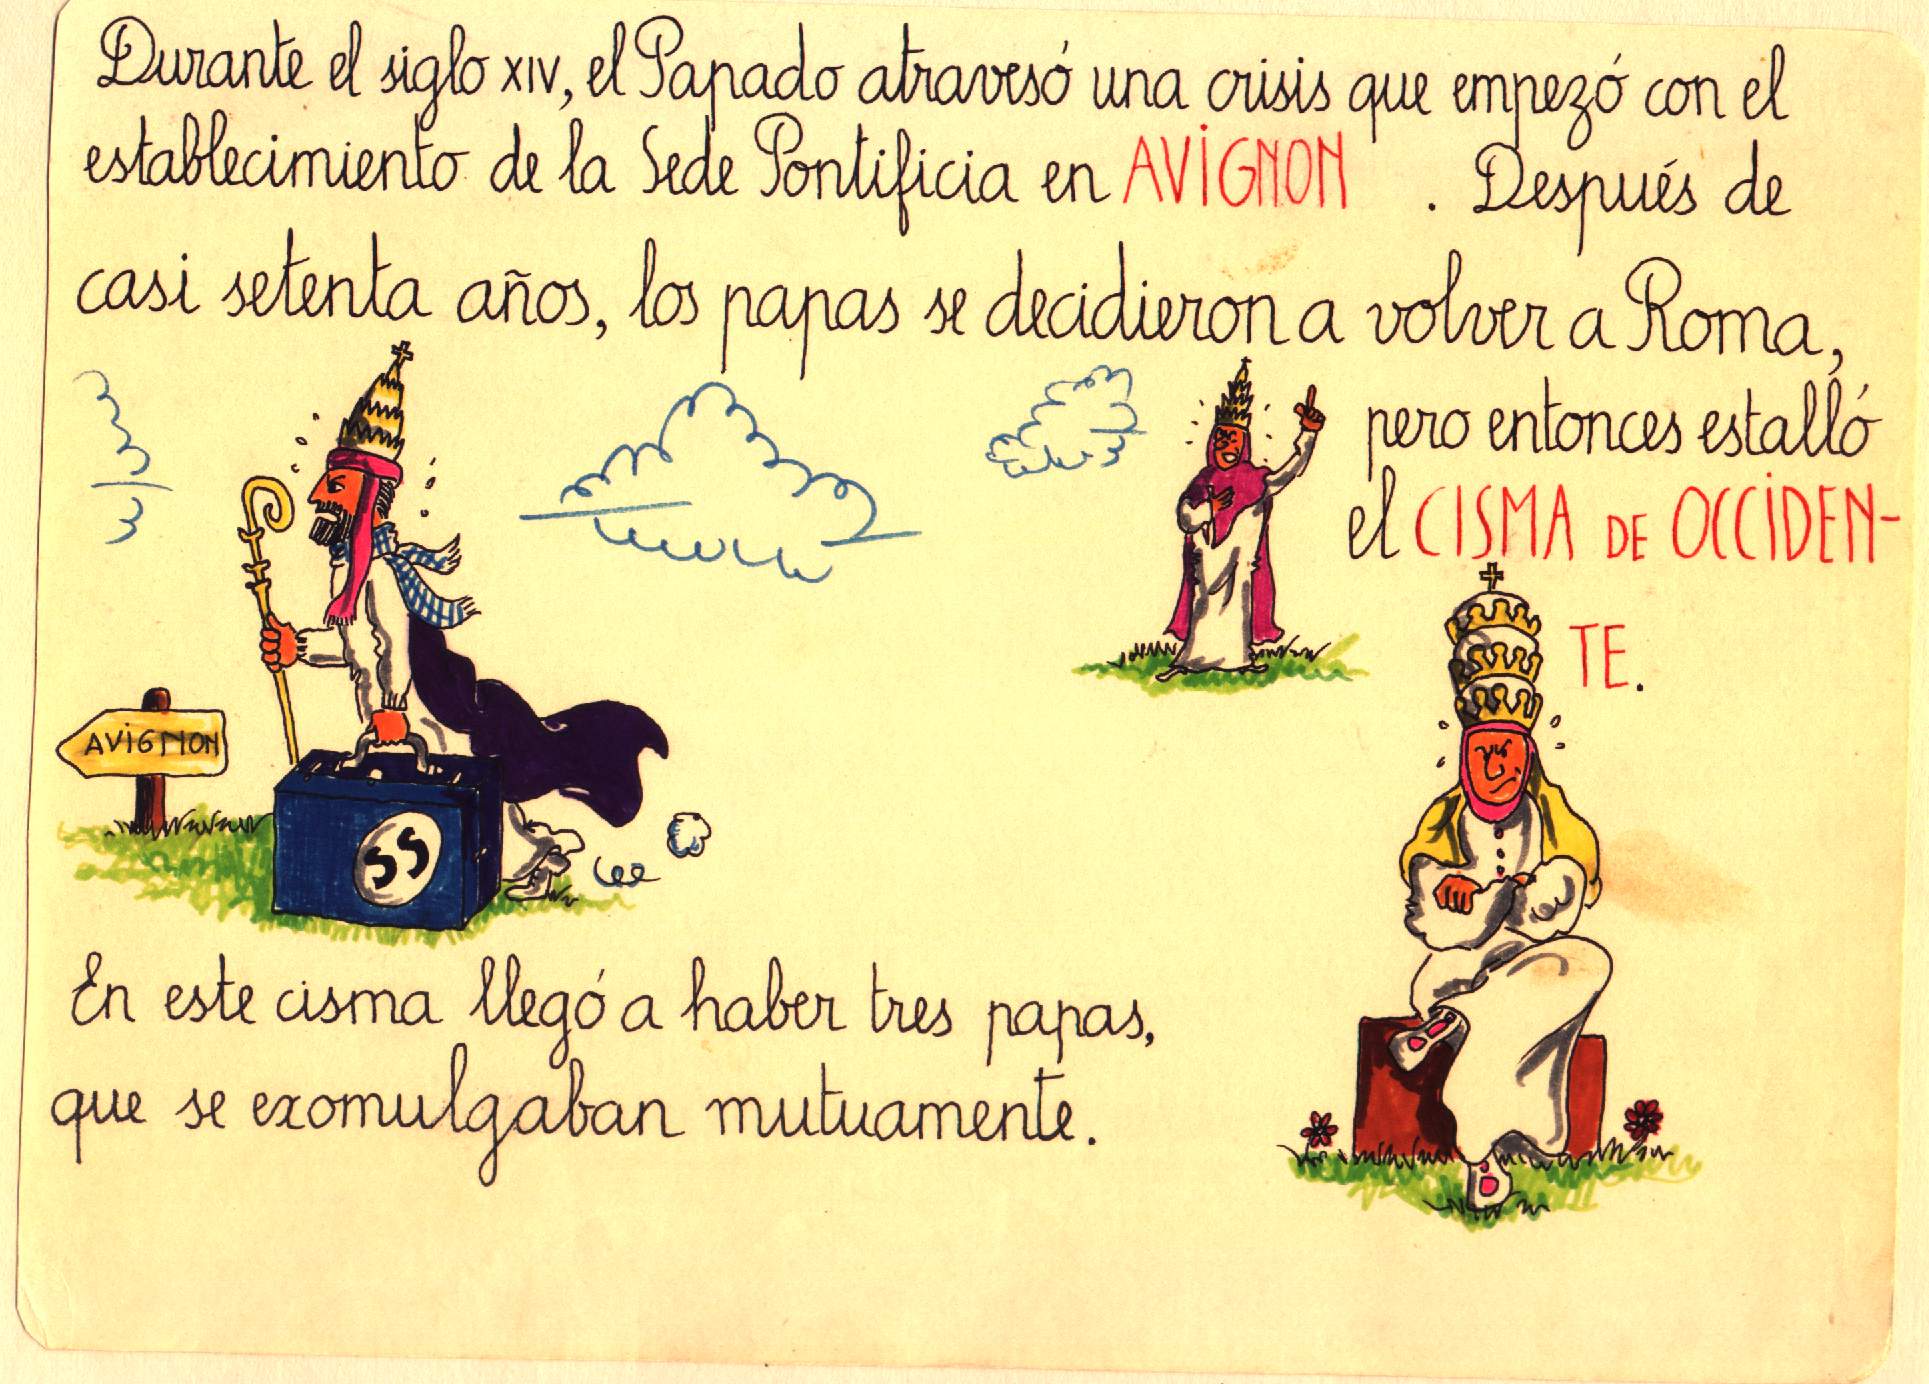 Durante el siglo XIV, el Papado atravesó una crisis que empezó con el
establecimiento de la Sede Pontificia en AVIGNON . Después de
casi setenta años, los papas se decidieron a volver a Roma,
pero entonces estalló
el CISMA DE OCCIDEN-
TE.
AVIGNON
SS
En este cisma llegó a haber tres papas,
que se exomulgaban mutuamente.